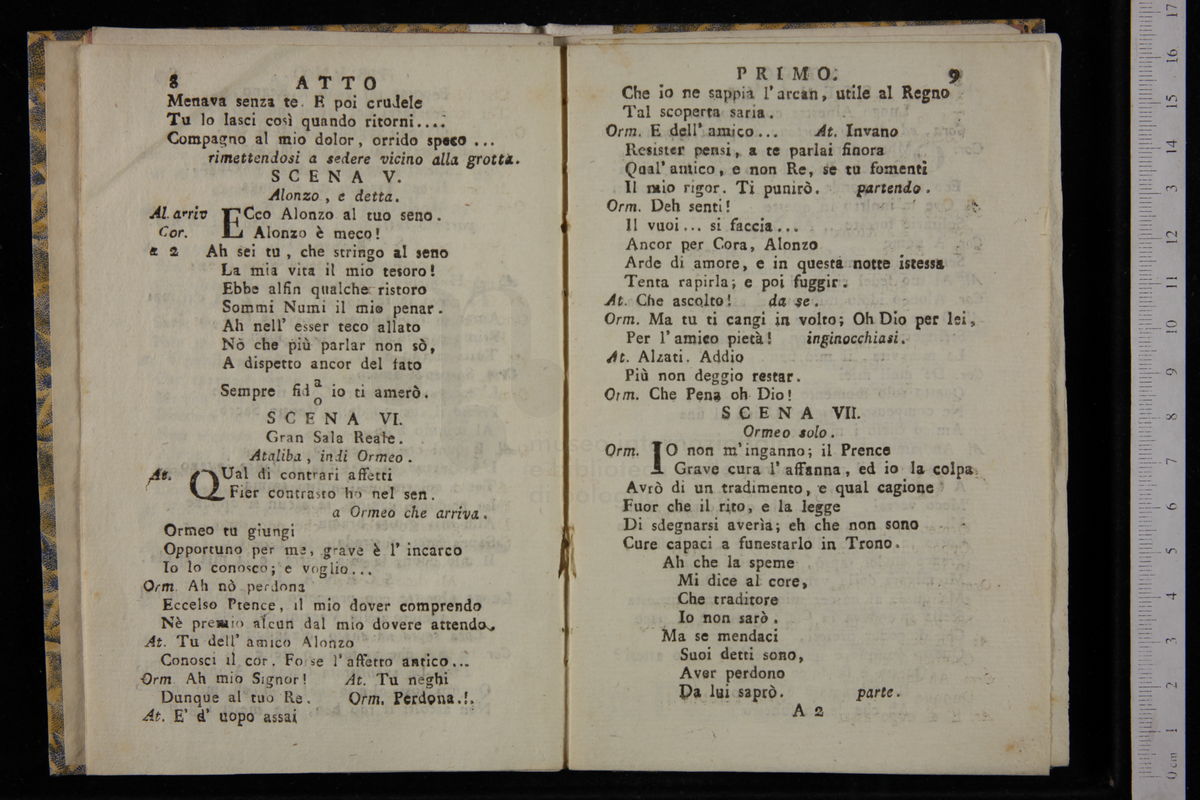 8 ATTO
Menava senza te. E poi crudele
Tu lo lasci così quando ritorni....
Compagno al mio dolor, orrido speco ...
rimettendosi a sedere vicino alla grotta.
SCENA V.
Alonzo, e detta.
Al. arriv ECco Alonzo al tuo seno.
Cor. Alonzo è meco!
a 2 Ah sei tu, che stringo al seno
La mia vita il mio tesoro!
Ebbe alfin qualche ristoro
Sommi Numi il mio penar.
Ah nell' esser teco allato
Nò che più parlar non sò,
A dispetto ancor del fato
Sempre fid a/o io ti amerò.
SCENA VI.
Gran Sala Reale.
Ataliba, indi Ormeo.
At. QUal di contrari affetti
Fier contrasto ho nel sen.
a Ormeo che arriva.
Ormeo tu giungi
Opportuno per me, grave è l' incarco
Io lo conosco; e voglio...
Orm. Ah nò perdona
Eccelso Prence, il mio dover comprendo
Nè premio alcun dal mio dovere attendo.
At. Tu dell' amico Alonzo
Conosci il cor. Forse l' affetto antico...
Orm. Ah mio Signor! At. Tu neghi
Dunque al tuo Re. Orm. Perdona.!.
At. E' d' uopo assai
PRIMO. 9
Che io ne sappia l' arcan, utile al Regno
Tal scoperta saria.
Orm. E dell' amico... At. Invano
Resister pensi, a te parlai finora
Qual' amico, e non Re, se tu fomenti
Il mio rigor. Ti punirò. partendo.
Orm. Deh senti!
Il vuoi... si faccia...
Ancor per Cora, Alonzo
Arde di amore, e in questa notte istessa
Tenta rapirla; e poi fuggir.
At. Che ascolto! da se.
Orm. Ma tu ti cangi in volto; Oh Dio per lei,
Per l' amico pietà! inginocchiasi.
At. Alzati. Addio
Più non deggio restar.
Orm. Che Pena oh Dio!
SCENA VII.
Ormeo solo.
Orm. IO non m' inganno; il Prence
Grave cura l' affanna, ed io la colpa
Avrò di un tradimento, e qual cagione
Fuor che il rito, e la legge
Di sdegnarsi averìa; eh che non sono
Cure capaci a funestarlo in Trono.
Ah che la speme
Mi dice al core,
Che traditore
Io non sarò.
Ma se mendaci
Suoi detti sono,
Aver perdono
Da lui saprò. parte.
A 2
0 cm 1 2 3 4 5 6 7 8 9 10 11 12 13 14 15 16 17